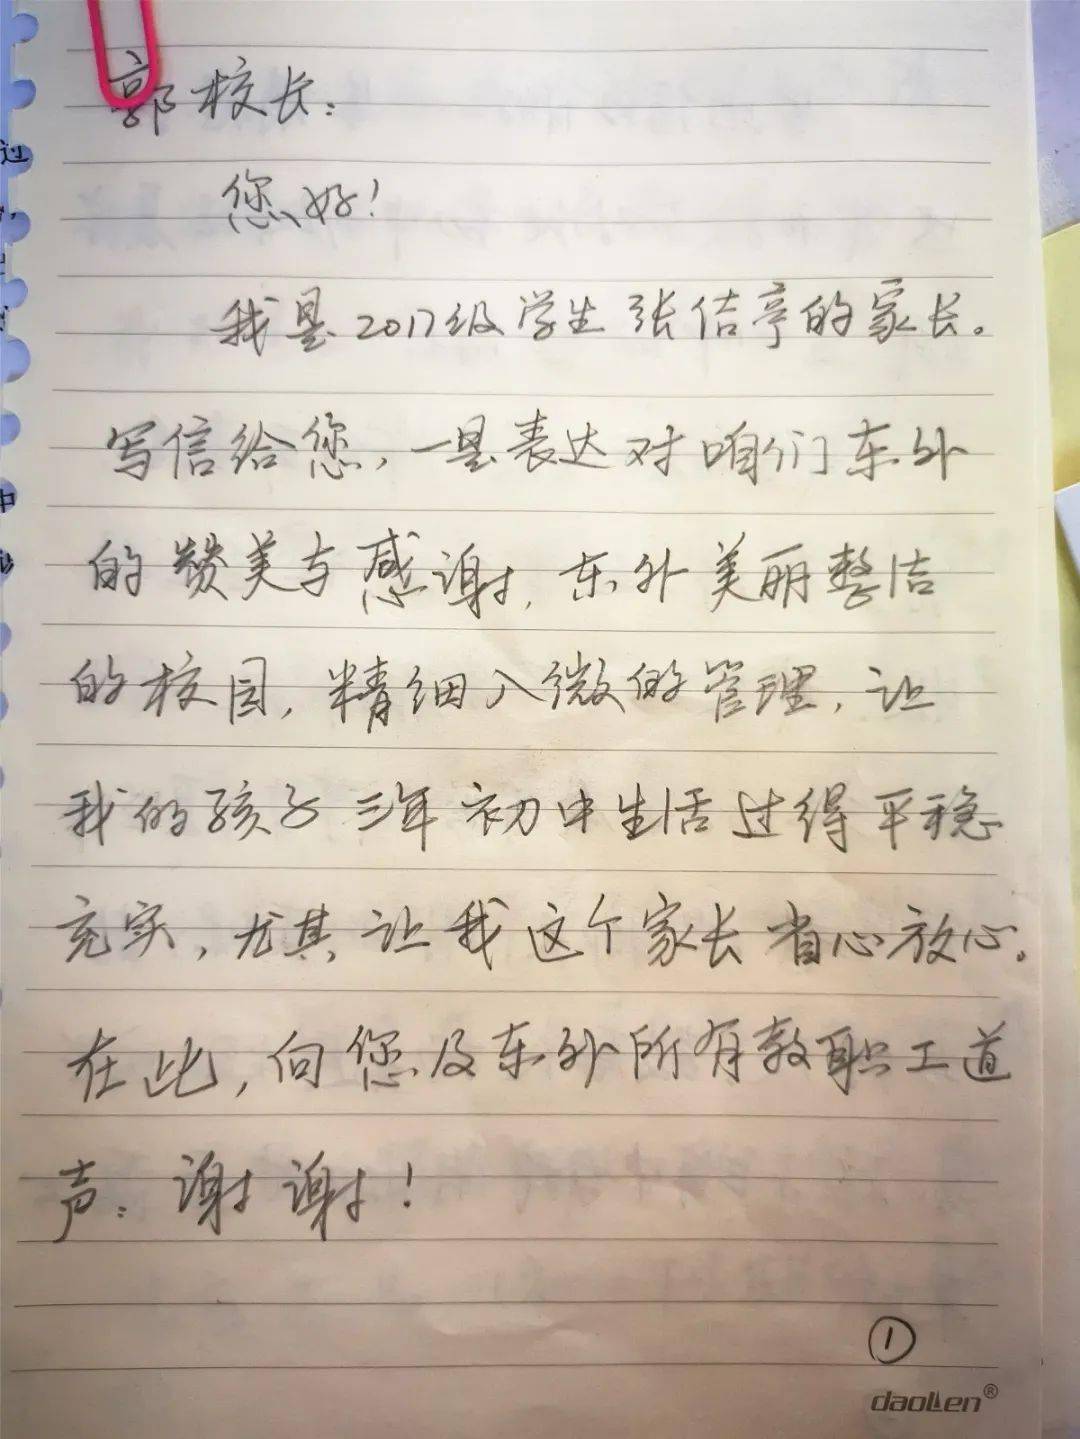 郭校长：
您好！
我是2017级学生张佶亭的家长。
写信给您，一是表达对咱们东外
的赞美与感谢，东外美丽整洁
的校园，精细入微的管理，让
我的孩子三年初中生活过得平稳
充实，尤其让我这个家长省心放心。
在此，向您及东外所有教职工道
声：谢谢！
①
daolen®
过
中